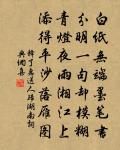 白紙無端墨筆書
分明一句却模糊
青燈夜雨湘江上
添得平沙落雁圖
釋了惠送人歸湖南詞
典網集